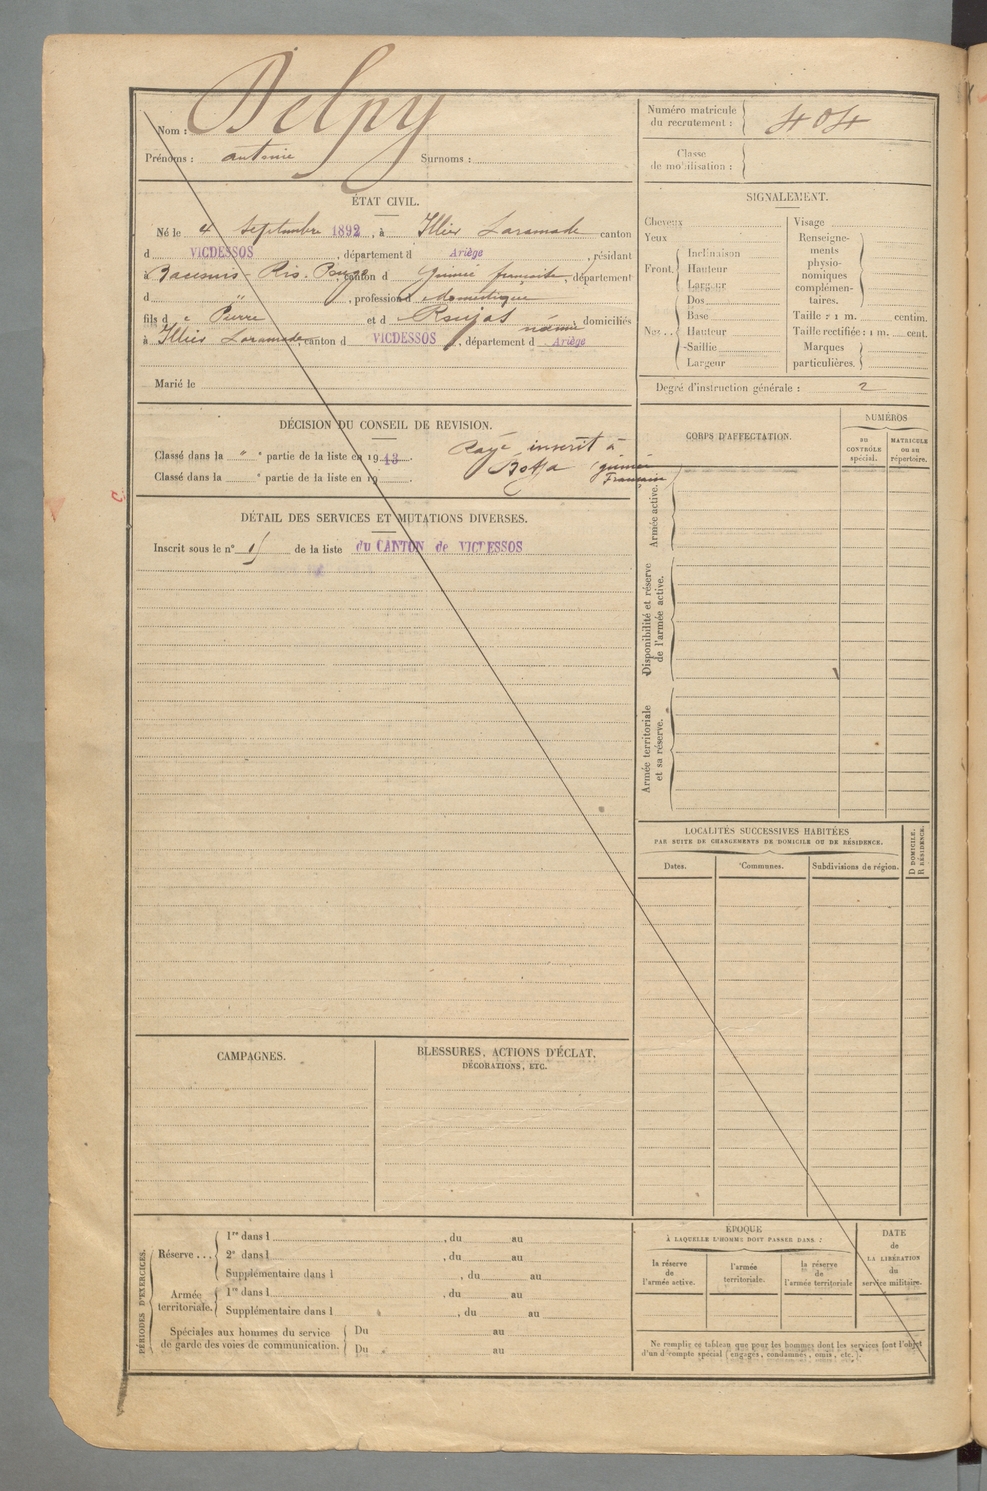 Nom : Delpy
Prénoms : antonie Surnoms :
Numéro matricule
du recrutement : 404
Classe
de mobilisation :
ÉTAT CIVIL.
Né le 4 Septembre 1892, à Illier Laramade canton
d VICDESSOS, département d Ariège, résidant
canton d Guinée française, département
d " , profession d domestique
fils de Pierre et d Roujas domiciliés
à Illier Laramade, canton d VICDESSOS, département d Ariège
Marié le
SIGNALEMENT.
Cheveux
Yeux
Front. Inclinaison
Hauteur
Largeur
Nez .. Dos
Base
Hauteur
Saillie
Largeur
Visage
Renseigne-
ments
physio-
nomiques
complémen-
taires.
Taille : 1 m. centim.
Taille rectifiée : 1 m. cent.
Marques
particulières.
Degré d'instruction générale : 2
DÉCISION DU CONSEIL DE REVISION.
Classé dans la " partie de la liste en 1913.
Classé dans la " partie de la liste en 19 .
Rayé inscrit à
Boffa Guinée
Française
CORPS D'AFFECTATION.
NUMÉROS
AU
CONTRÔLE
spécial.
MATRICULE
OU AU
répertoire.
Armée active.
Disponibilité et réserve
de l'armée active.
Armée territoriale
et sa réserve.
DÉTAIL DES SERVICES ET MUTATIONS DIVERSES.
Inscrit sous le n° de la liste du CANTON de VICDESSOS
LOCALITÉS SUCCESSIVES HABITÉES
PAR SUITE DE CHANGEMENTS DE DOMICILE OU DE RÉSIDENCE.
Dates. Communes. Subdivisions de région.
D DOMICILE.
R RÉSIDENCE.
CAMPAGNES.
BLESSURES, ACTIONS D'ÉCLAT,
DÉCORATIONS, ETC.
PÉRIODES D'EXERCICES.
Réserve ... 1re dans l , du au
2e dans l , du au
Supplémentaire dans l , du au
Armée
territoriale. 1re dans l , du au
Supplémentaire dans l , du au
Spéciales aux hommes du service
de garde des voies de communication. Du au
Du au
ÉPOQUE
À LAQUELLE L'HOMME DOIT PASSER DANS :
la réserve
de
l'armée active.
l'armée
territoriale.
la réserve
de
l'armée territoriale
DATE
de
LA LIBÉRATION
du
service militaire.
Ne remplir ce tableau que pour les hommes dont les services font l'objet
d'un décompte spécial (engagés, condamnés, omis, etc.).